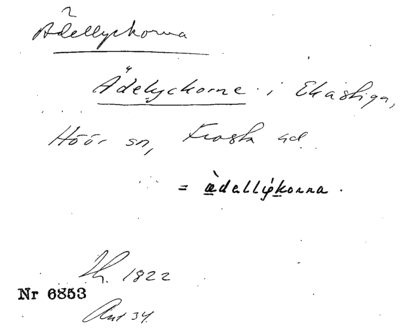 Ådellyckorna
Ådelyckorne i Ekastiga,
Höör sn, Frosta hd
= àdellýkorna.
Th. 1822
Nr 6853
Ant 34.